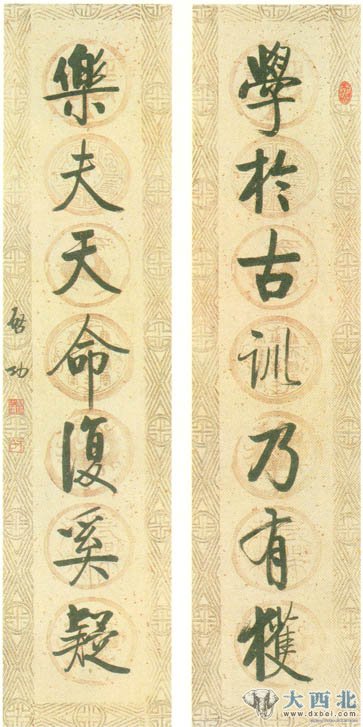 學於古訓乃有獲
樂夫天命復奚疑
啓功
大西北
www.dxbei.com